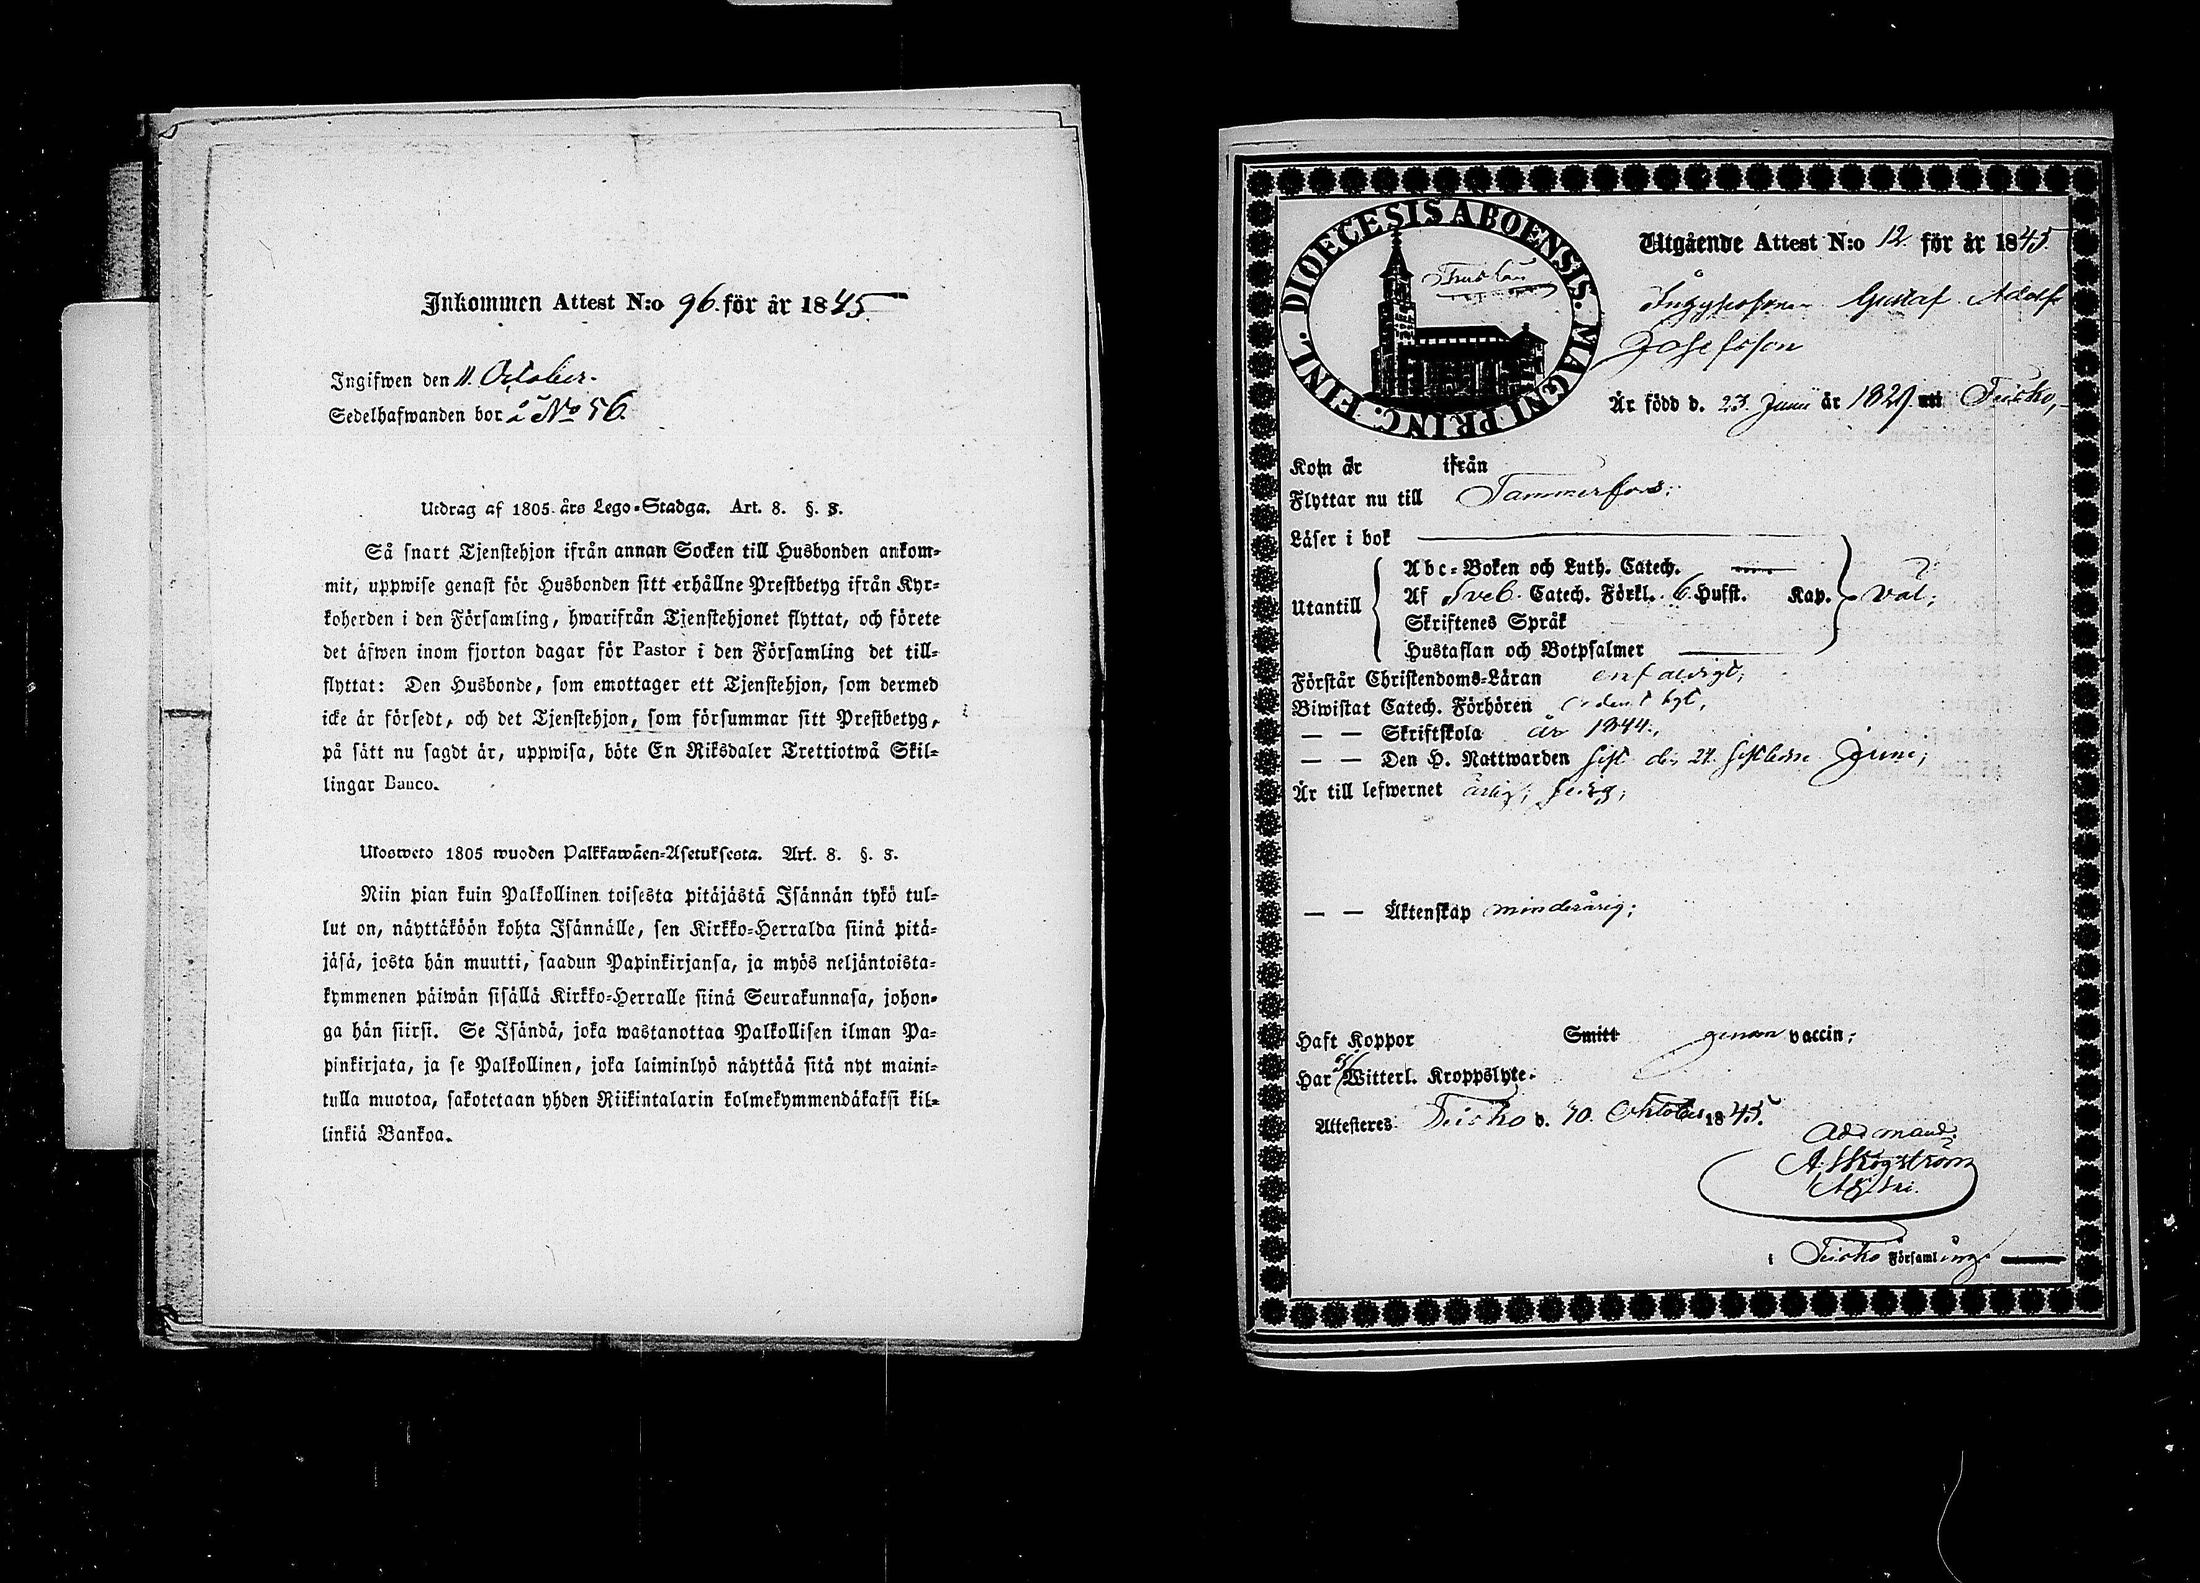 Inkommen Attest N:o 96. för år 1845
Ingifwen den 11. October.
Sedelhafwanden bor å No 56.
Utdrag af 1805 års Lego-Stadga. Art. 8. §. 3.
Så snart Tjenstehjon ifrån annan Socken till Husbonden ankom-
mit, uppwise genast för Husbonden sitt erhållne Prestbetyg ifrån Kyr-
koherden i den Församling, hwarifrån Tjenstehjonet flyttat, och förete
det äfwen inom fjorton dagar för Pastor i den Församling det till-
flyttat: Den Husbonde, som emottager ett Tjenstehjon, som dermed
icke är försedt, och det Tjenstehjon, som försummar sitt Prestbetyg,
på sätt nu sagdt är, uppwisa, böte En Riksdaler Trettiotwå Skil-
lingar Banco.
Ulosweto 1805 wuoden Palkkawäen-Asetuksesta. Art. 8. §. 3.
Niin pian kuin Palkollinen toisesta pitäjästä Isännän tykö tul-
lut on, näyttäköön kohta Isännälle, sen Kirkko-Herralda siinä pitä-
jäsä, josta hän muutti, saadun Papinkirjansa, ja myös neljäntoista-
kymmenen päiwän sisällä Kirkko-Herralle siinä Seurakunnasa, johon-
ga hän siirsi. Se Isändä, joka wastanottaa Palkollisen ilman Pa-
pinkirjata, ja se Palkollinen, joka laiminlyö näyttää sitä nyt maini-
tulla muotoa, sakotetaan yhden Riikintalarin kolmekymmendäkaksi kil-
linkiä Bankoa.
DIOECESIS ABOENSIS. MAGNI PRINC. FINL.
Utgående Attest N:o 12. för år 1845.
Gustaf Adolf
Josefsson
Är född d. 23 Junii år 1829 uti Teisko,
Kom år ifrån
Flyttar nu till Tammerfors;
Läser i bok
Utantill
Abc-Boken och Luth. Catech.
Af Sveb. Catech. Förkl. 6 Hufst. Kap. väl;
Skriftenes Språk
Hustaflan och Botpsalmer
Förstår Christendoms-Läran enfaldigt;
Biwistat Catech. Förhören ordentligt,
— — Skriftskola år 1844,
— — Den H. Nattwarden sist den 24. sistledne Junii;
Är till lefwernet ärlig,
— — Äktenskap minderårig;
Haft Koppor Smitt genom vaccin;
Har ej Witterl. Kroppslyte.
Attesteres Teisko d. 10. Oktober 1845.
Ad mand.
i Teisko Församlings